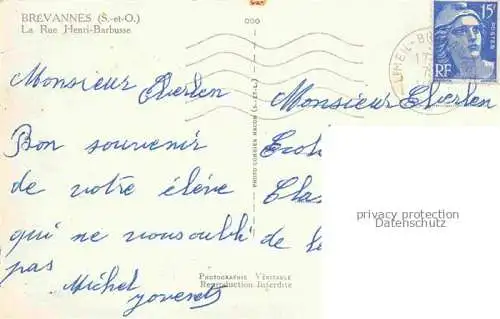 BREVANNES (S.-et-O.)
La Rue Henri-Barbusse
000
15F
POSTES
RF
LIMEIL-BR
17
Monsieur Eberlen
Bon souvenir
de votre élève
qui ne vousoubli
pas
Michel
PHOTO COMBIER MACON (S.-ET-L.)
PHOTOGRAPHIE VÉRITABLE
Reproduction Interdite
Monsieur Eberlen
Ecol
Clas
de
privacy protection
Datenschutz